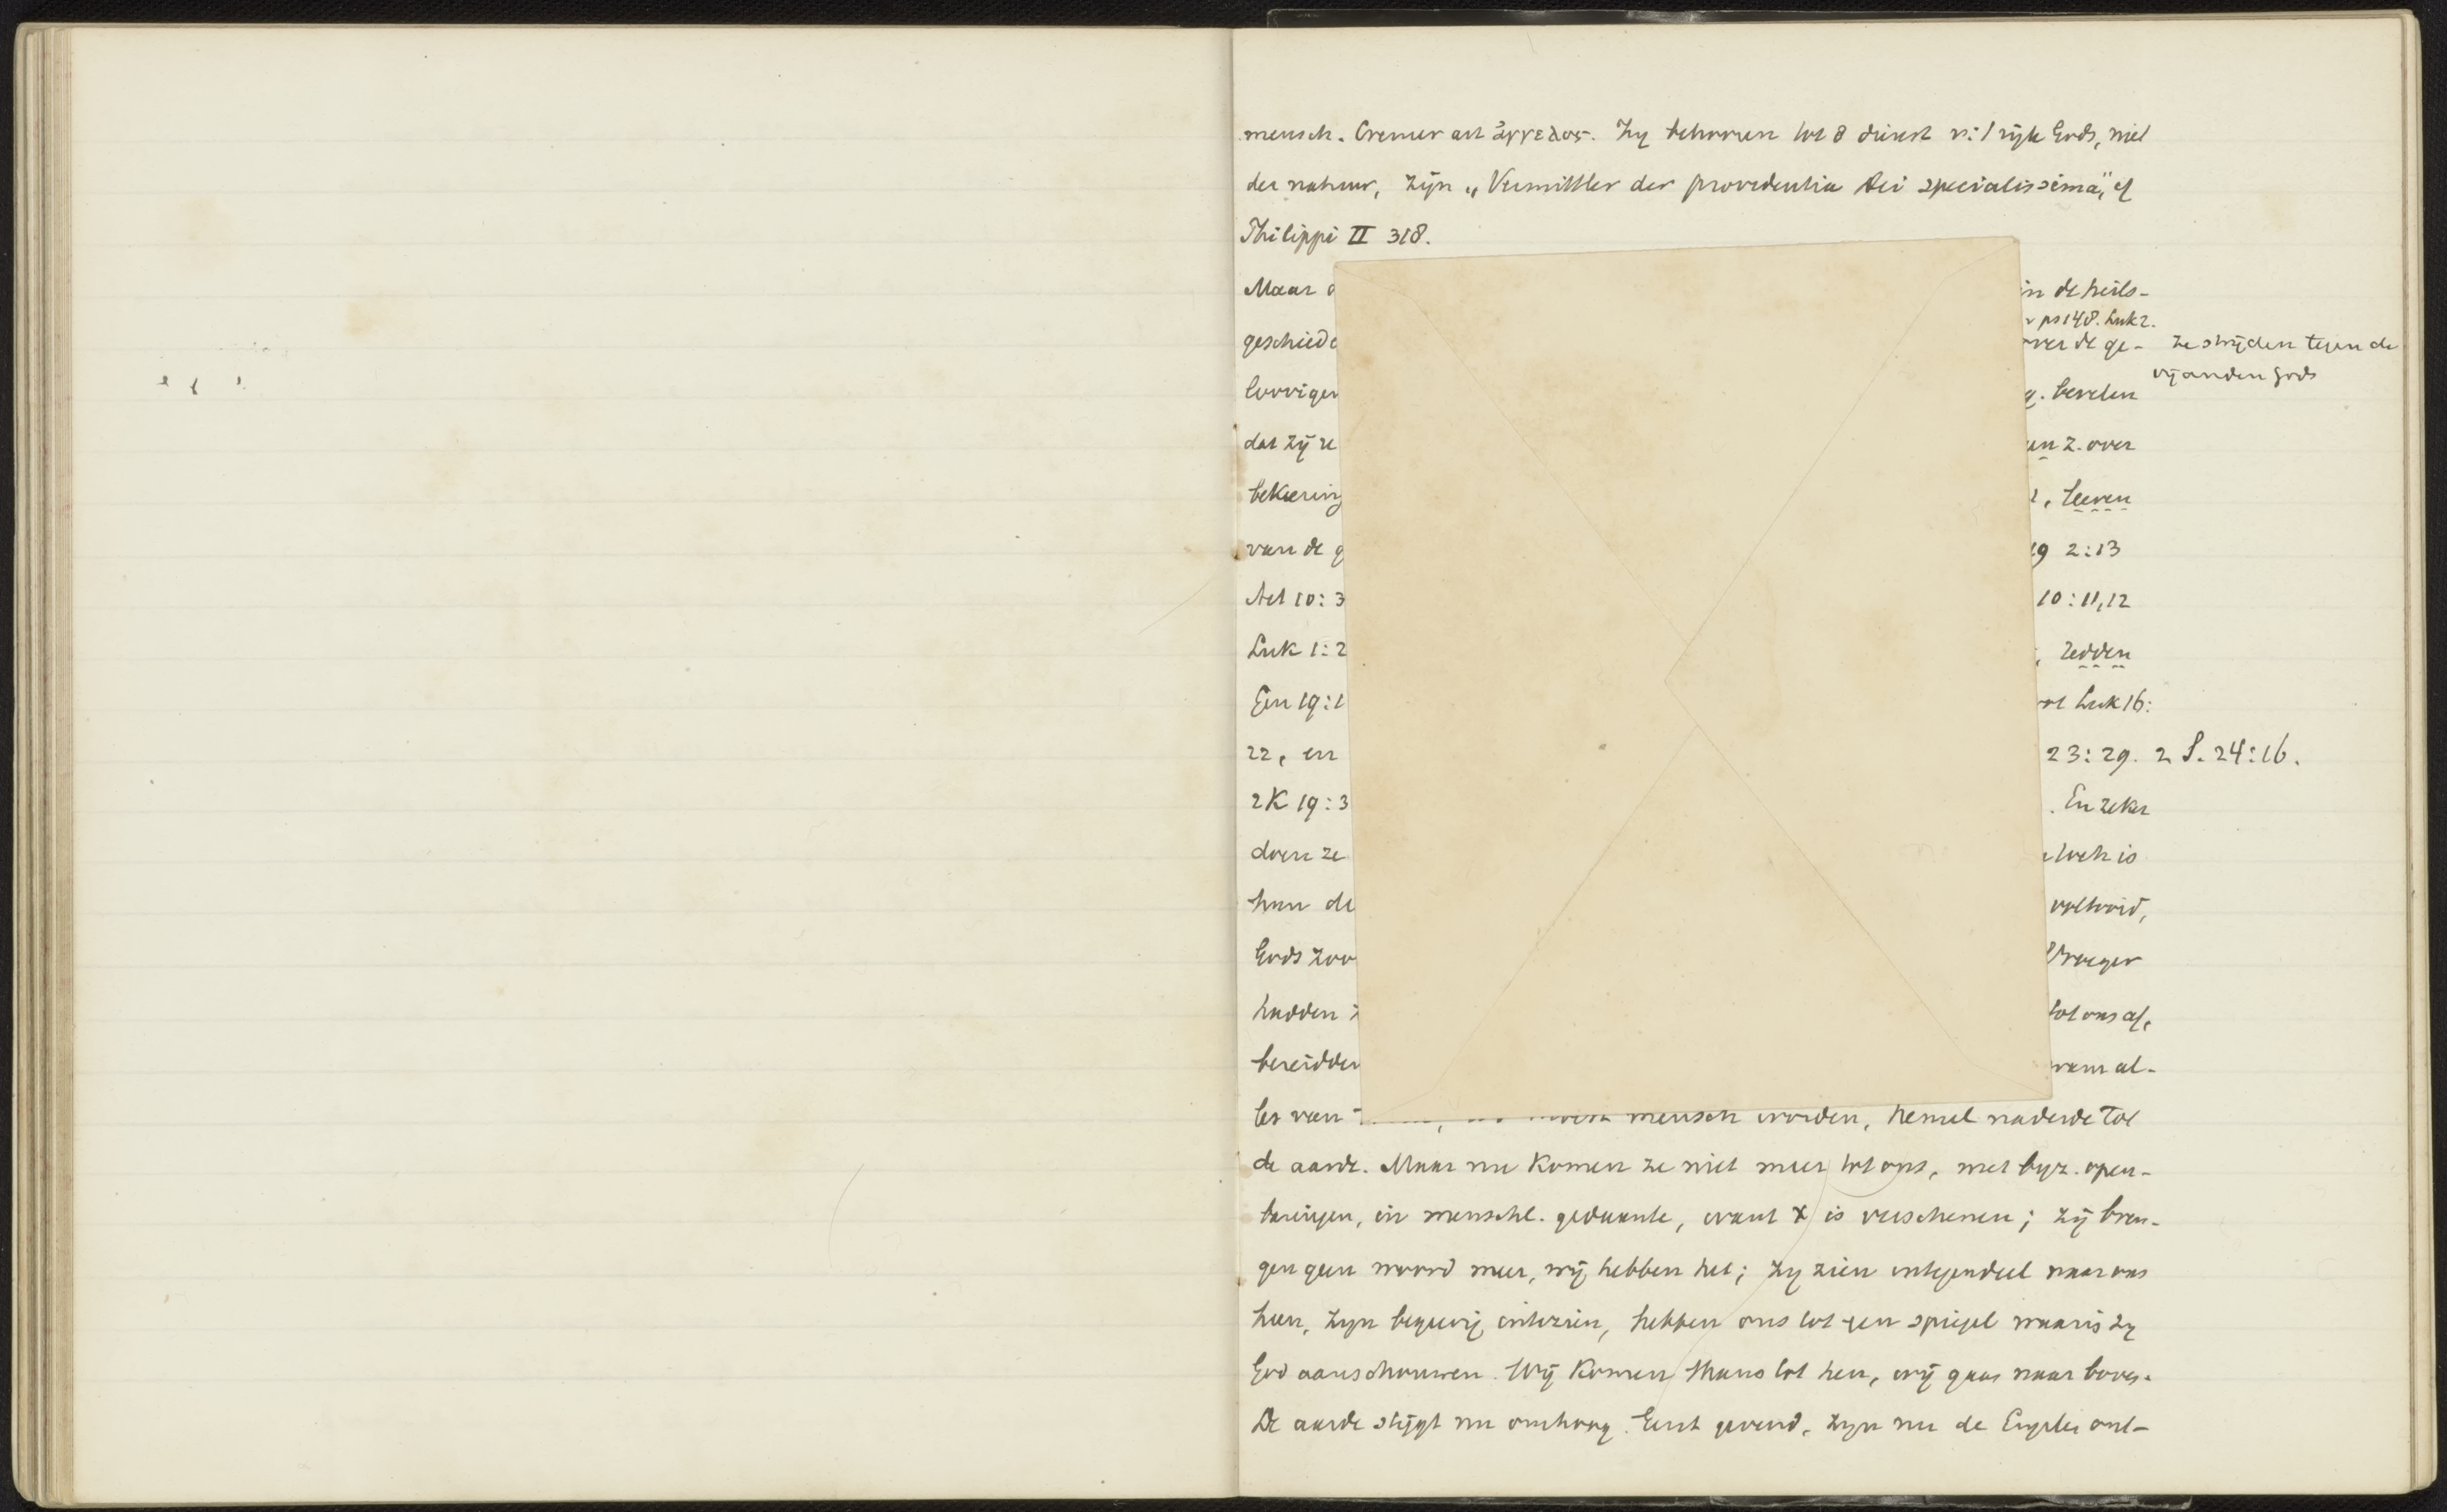 mensch. Cremer art ἄγγελος. Zy behooren tot d dienst v: 't rijk Gods, niet
der natuur, zijn „Vermittler der providentia Dei specialissima", cf
Philippi II 318.
Maar
in de heils-
ps 148. Luk 2.
geschied
over de ge-
ze strijden tegen de
vijanden Gods
loovigen
bevelen
dat zij ze
z. over
bekeering
, leeren
van de g
19 2:13
Act 10:3
10:11,12
Luk 1:2
, redden
Gen 19:1
Luk 16:
22, en
23:29. 2 S. 24:16.
2K 19:3
. En zeker
doen ze
toch is
hun de
voltooid,
Gods Zoo
Vroeger
hadden
tot ons af,
bereidden
kwam al-
les van
mensch worden, hemel naderde tot
de aarde. Maar nu komen ze niet meer tot ons, met byz. open-
baringen, in menschl. gedaante, want X is verschenen; zij bren-
gen geen woord meer, wij hebben het; zy zien integendeel naar ons
heen, zyn begeerig intezien, hebben ons tot een spiegel waarin zy
God aanschouwen. Wij komen thans tot hen, wij gaan naar boven.
De aarde stijgt nu omhoog. Eerst gevend, zyn nu de Engelen ont-